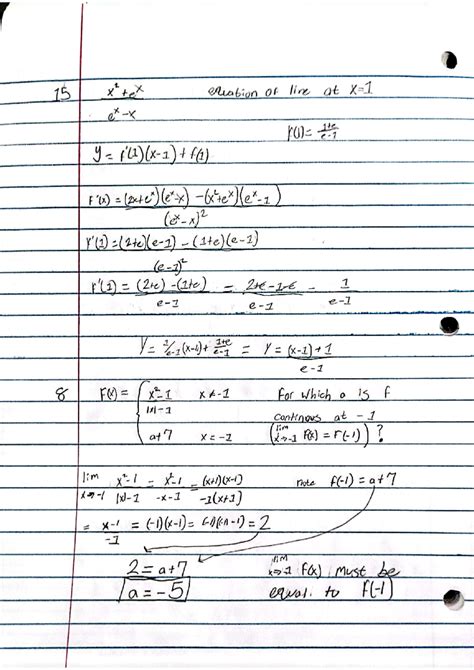 15 (x²+eˣ)/(eˣ-x) equation of line at x=1
f(1)= (1+e)/(e-1)
y = f'(1)(x-1) + f(1)
F'(x) = ((2x+eˣ)(eˣ-x) -(x²+eˣ)(eˣ-1))/(eˣ-x)²
F'(1) = ((2+e)(e-1) - (1+e)(e-1))/(e-1)²
F'(1) = ((2+e) -(1+e))/(e-1) = (2+e-1-e)/(e-1) = 1/(e-1)
Y = 1/(e-1) (x-1) + (1+e)/(e-1) = Y = ((x-1)+1)/(e-1)
8 F(x) = { (x²-1)/(|x|-1) x≠-1 For which a is f
a+7 x=-1 continous at -1
(lim x→-1 F(x) = F(-1)) ?
lim x→-1 (x²-1)/(|x|-1) = (x²-1)/(-x-1) = ((x+1)(x-1))/(-1(x+1)) note f(-1) = a+7
= (x-1)/-1 = (-1)(x-1) = (-1)(-1-1) = 2
2 = a+7
a = -5
lim x→-1 F(x) must be
equal to F(-1)